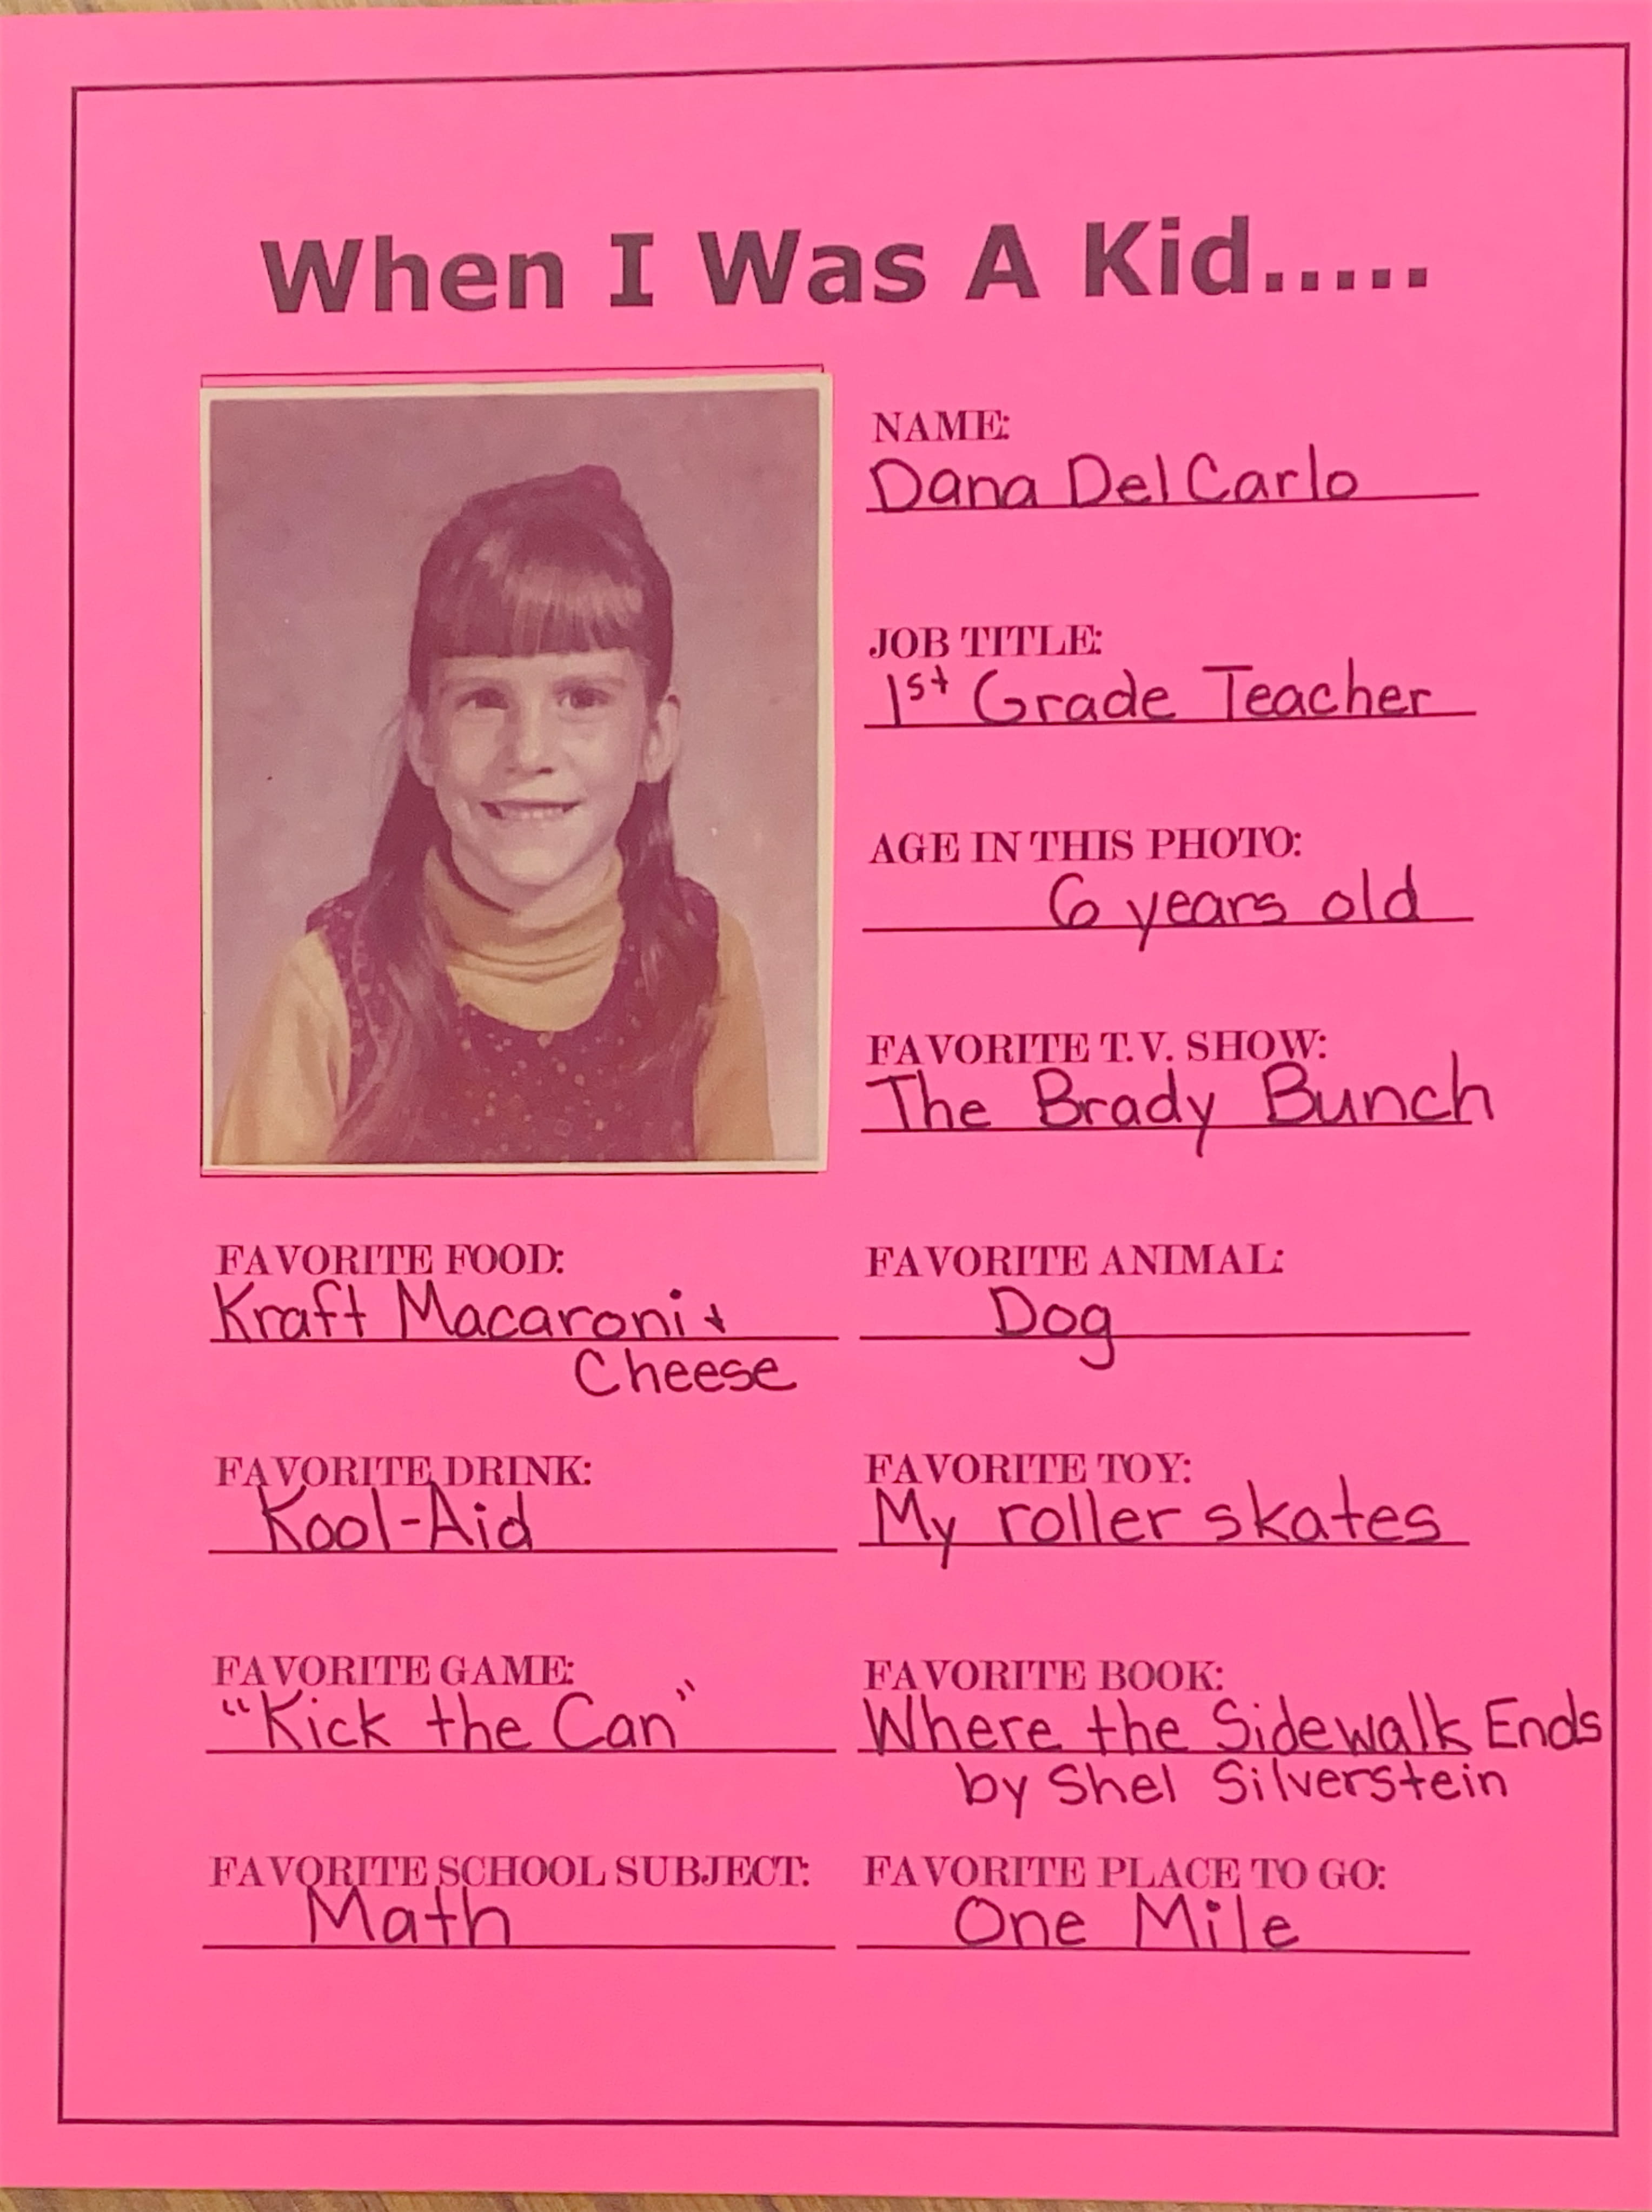 When I Was A Kid.....
NAME:
Dana Del Carlo
JOB TITLE:
1st Grade Teacher
AGE IN THIS PHOTO:
6 years old
FAVORITE T.V. SHOW:
The Brady Bunch
FAVORITE FOOD:
Kraft Macaroni &
Cheese
FAVORITE ANIMAL:
Dog
FAVORITE DRINK:
Kool-Aid
FAVORITE TOY:
My roller skates
FAVORITE GAME:
"Kick the Can"
FAVORITE BOOK:
Where the Sidewalk Ends
by Shel Silverstein
FAVORITE SCHOOL SUBJECT:
Math
FAVORITE PLACE TO GO:
One Mile